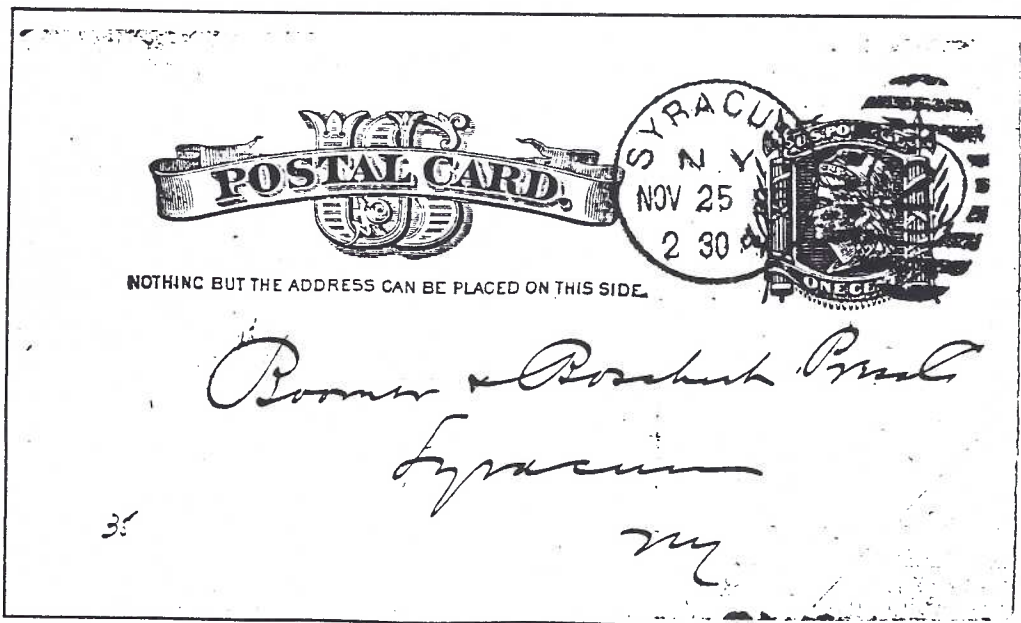 US
POSTAL CARD.
SYRACU
N Y
NOV 25
2 30 P
U.S. PO
ONE CE
NOTHING BUT THE ADDRESS CAN BE PLACED ON THIS SIDE.
Boomer & Boschert Press Co
Syracuse
NY
35